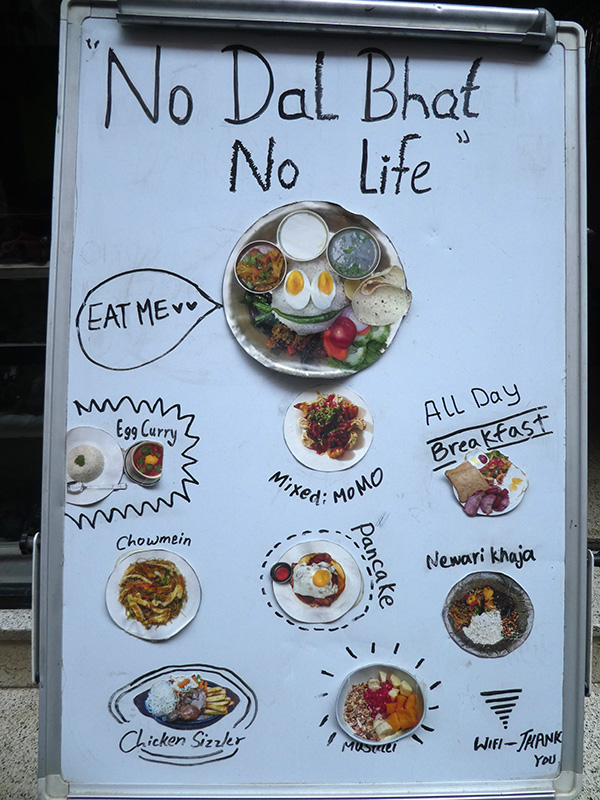 "No Dal Bhat
No Life"
EAT ME
Egg Curry
Mixed: MoMO
All Day
Breakfast
Chowmein
Pancake
Newari khaja
Chicken Sizzler
WIFI – THANK
YOU